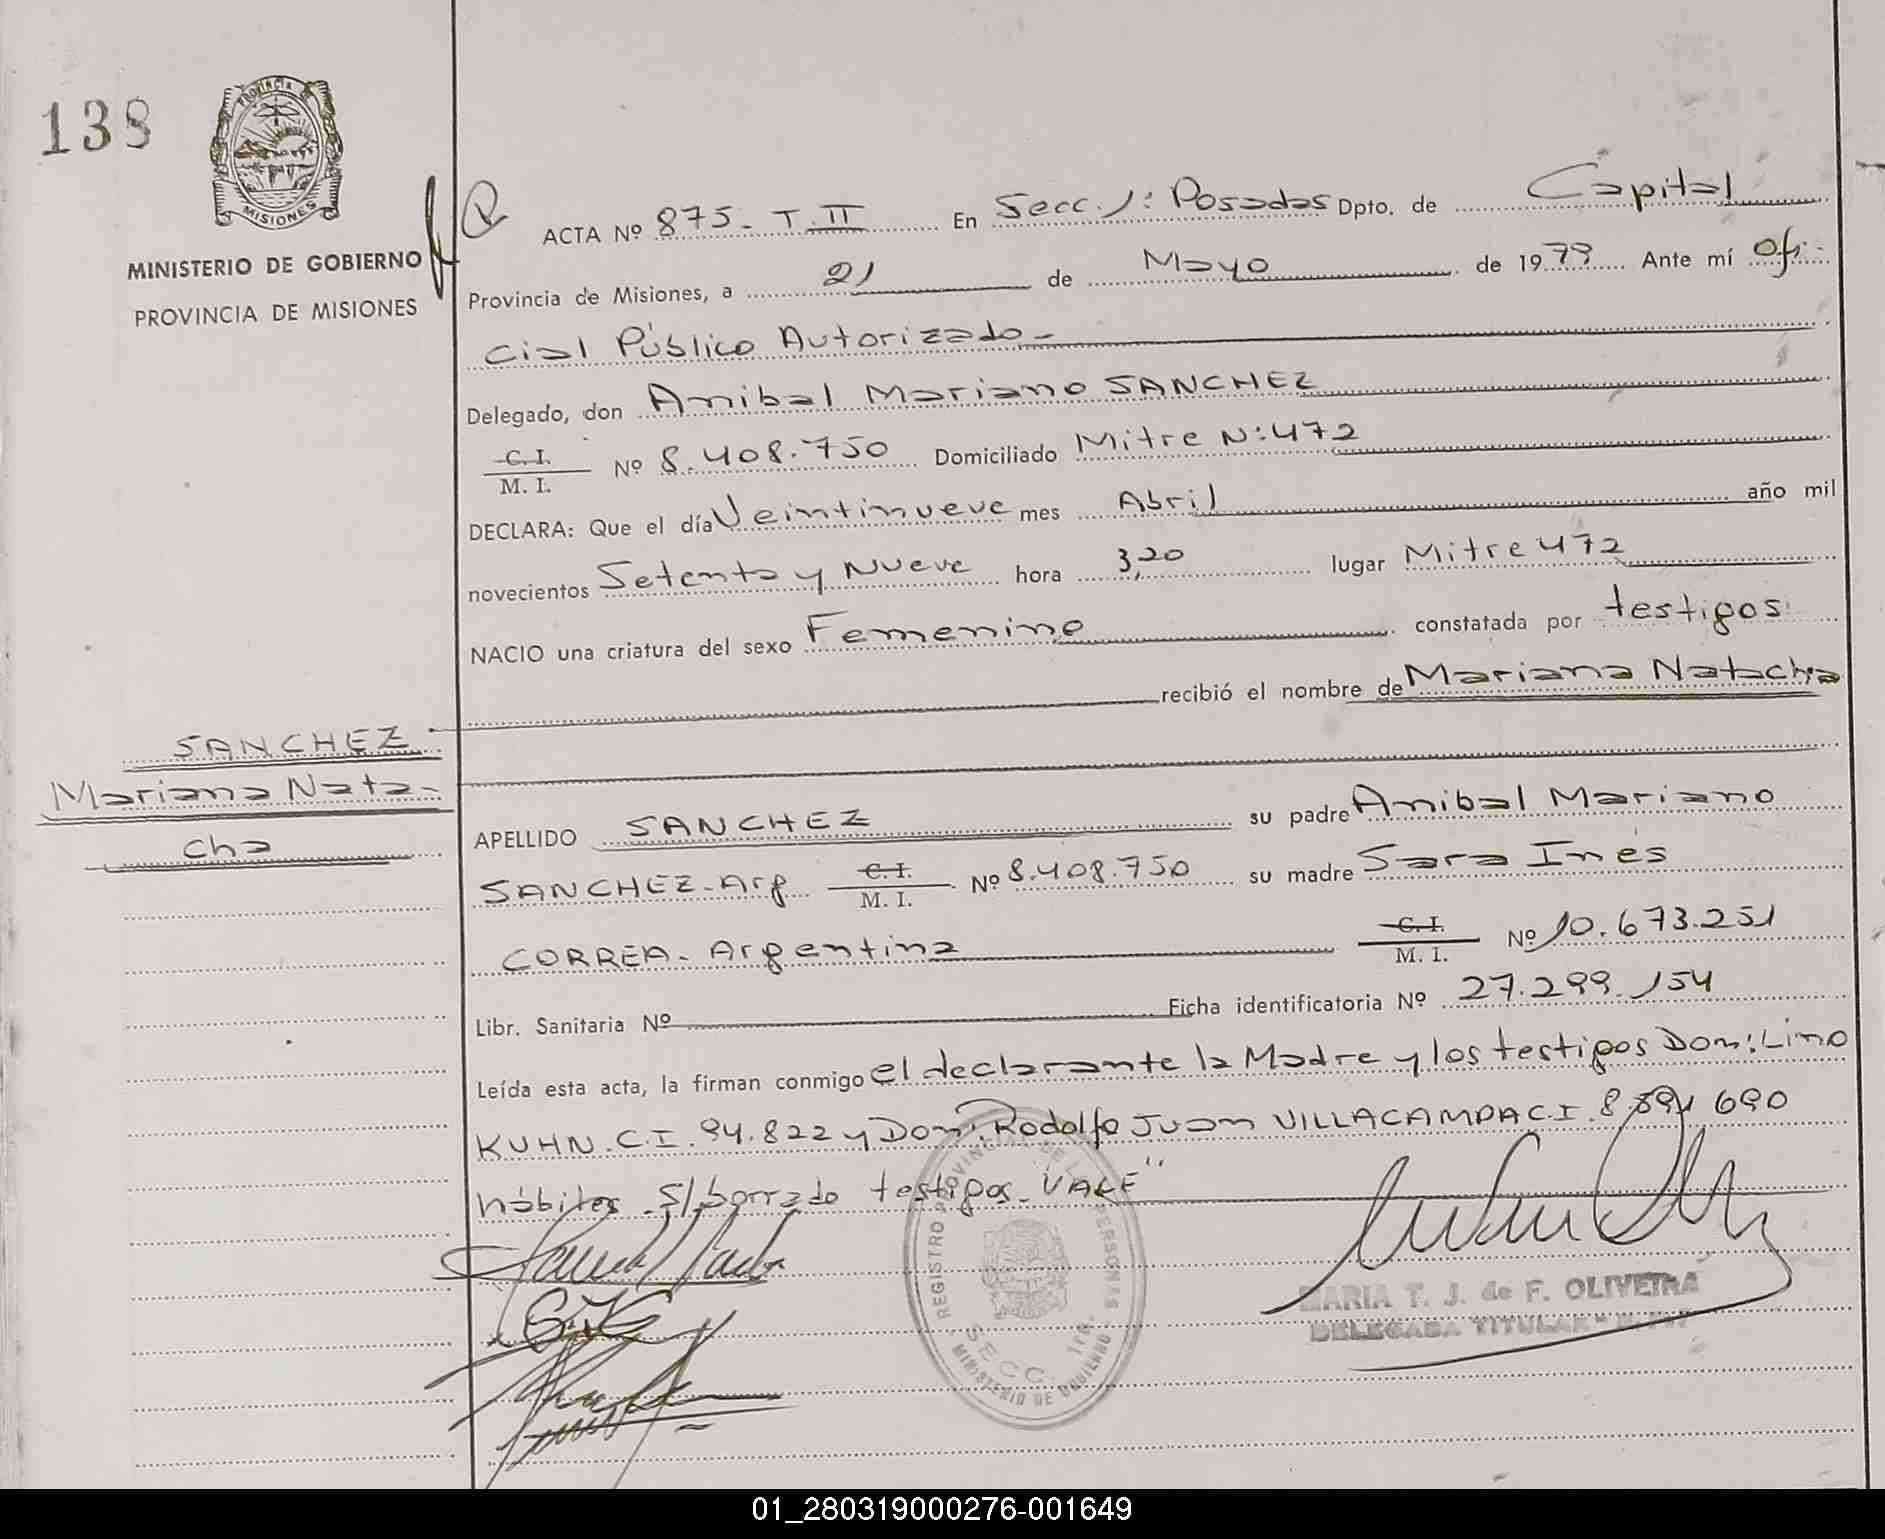 138
PROVINCIA DE
MISIONES
MINISTERIO DE GOBIERNO
PROVINCIA DE MISIONES
ACTA Nº 875. T. II En Secc. 1: Posadas Dpto. de Capital
Provincia de Misiones, a 21 de Mayo de 1979 Ante mí Ofi-
cial Público Autorizado-
Delegado, don Anibal Mariano SANCHEZ
C. I. / M. I. Nº 8.408.750 Domiciliado Mitre N: 472
DECLARA: Que el día Veintinueve mes Abril año mil
novecientos Setenta y Nueve hora 3,20 lugar Mitre 472
NACIO una criatura del sexo Femenino constatada por testigos
recibió el nombre de Mariana Natacha
SANCHEZ
Mariana Nata-
cha
APELLIDO SANCHEZ su padre Anibal Mariano
SANCHEZ-Arg C. I. / M. I. Nº 8.408.750 su madre Sara Inés
CORREA- Argentina C. I. / M. I. Nº 10.673.251
Libr. Sanitaria Nº Ficha identificatoria Nº 27.299.154
Leída esta acta, la firman conmigo el declarante la Madre y los testigos Don: Lino
KUHN. C.I. 94.822 y Don: Rodolfo Juan VILLACAMPA C.I. 690
hábiles. S/borrado testigos. VALE"
REGISTRO PROVINCIAL DE LAS PERSONAS
SECC. 1RA.
MINISTERIO DE GOBIERNO
MARIA T. J. de F. OLIVEIRA
DELEGADA TITULAR
01_280319000276-001649